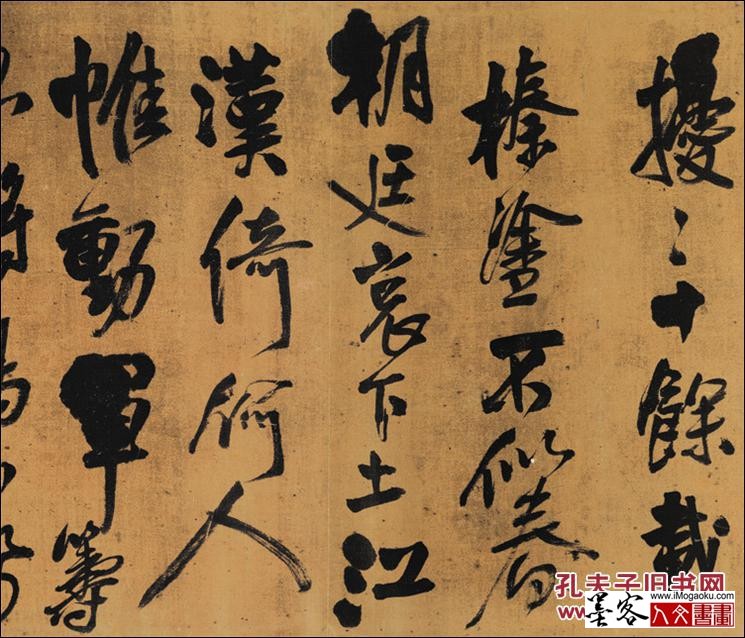 擾〻十餘載
榛塗不似春
朝廷哀下土江
漢倚何人
帷動軍籌
孔夫子旧书网
墨客
www.iMogaoku.com
人文書畫